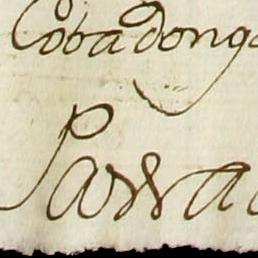 Cobadonga
Parra